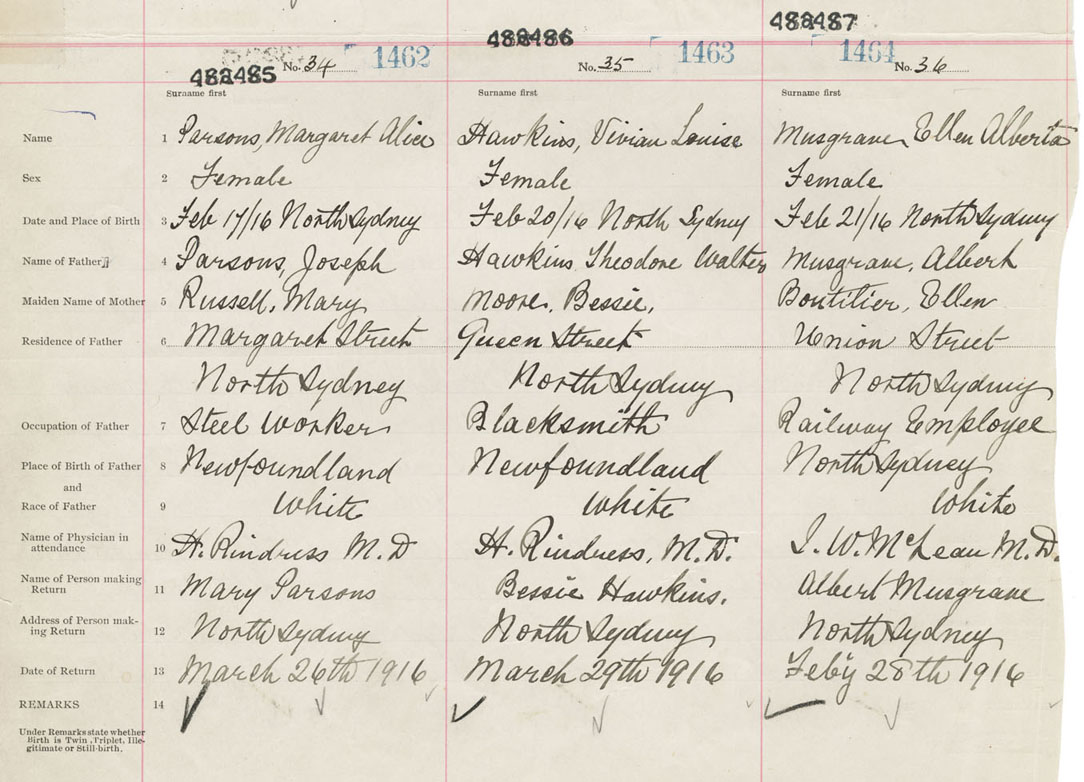 482485 482486 482487
No. 34 1462 No. 35 1463 1464 No. 36
Surname first Surname first Surname first
Name 1 Parsons, Margaret Alice Hawkins, Vivian Louise Musgrave, Ellen Alberta
Sex 2 Female Female Female
Date and Place of Birth 3 Feb 17/16 North Sydney Feb 20/16 North Sydney Feb 21/16 North Sydney
Name of Father 4 Parsons, Joseph Hawkins Theodore Walter Musgrave, Albert
Maiden Name of Mother 5 Russell, Mary Moore, Bessie, Boutilier, Ellen
Residence of Father 6 Margaret Street Queen Street Union Street
North Sydney North Sydney North Sydney
Occupation of Father 7 Steel Worker Blacksmith Railway Employee
Place of Birth of Father 8 Newfoundland Newfoundland North Sydney
and
Race of Father 9 White White White
Name of Physician in
attendance 10 H. Rindress M.D H. Rindress, M.D. J. W. McLean M.D.
Name of Person making
Return 11 Mary Parsons Bessie Hawkins. Albert Musgrave
Address of Person mak-
ing Return 12 North Sydney North Sydney North Sydney
Date of Return 13 March 26th 1916 March 29th 1916 Feb'y 28th 1916
REMARKS 14
Under Remarks state whether
Birth is Twin, Triplet, Ille-
gitimate or Still-birth.